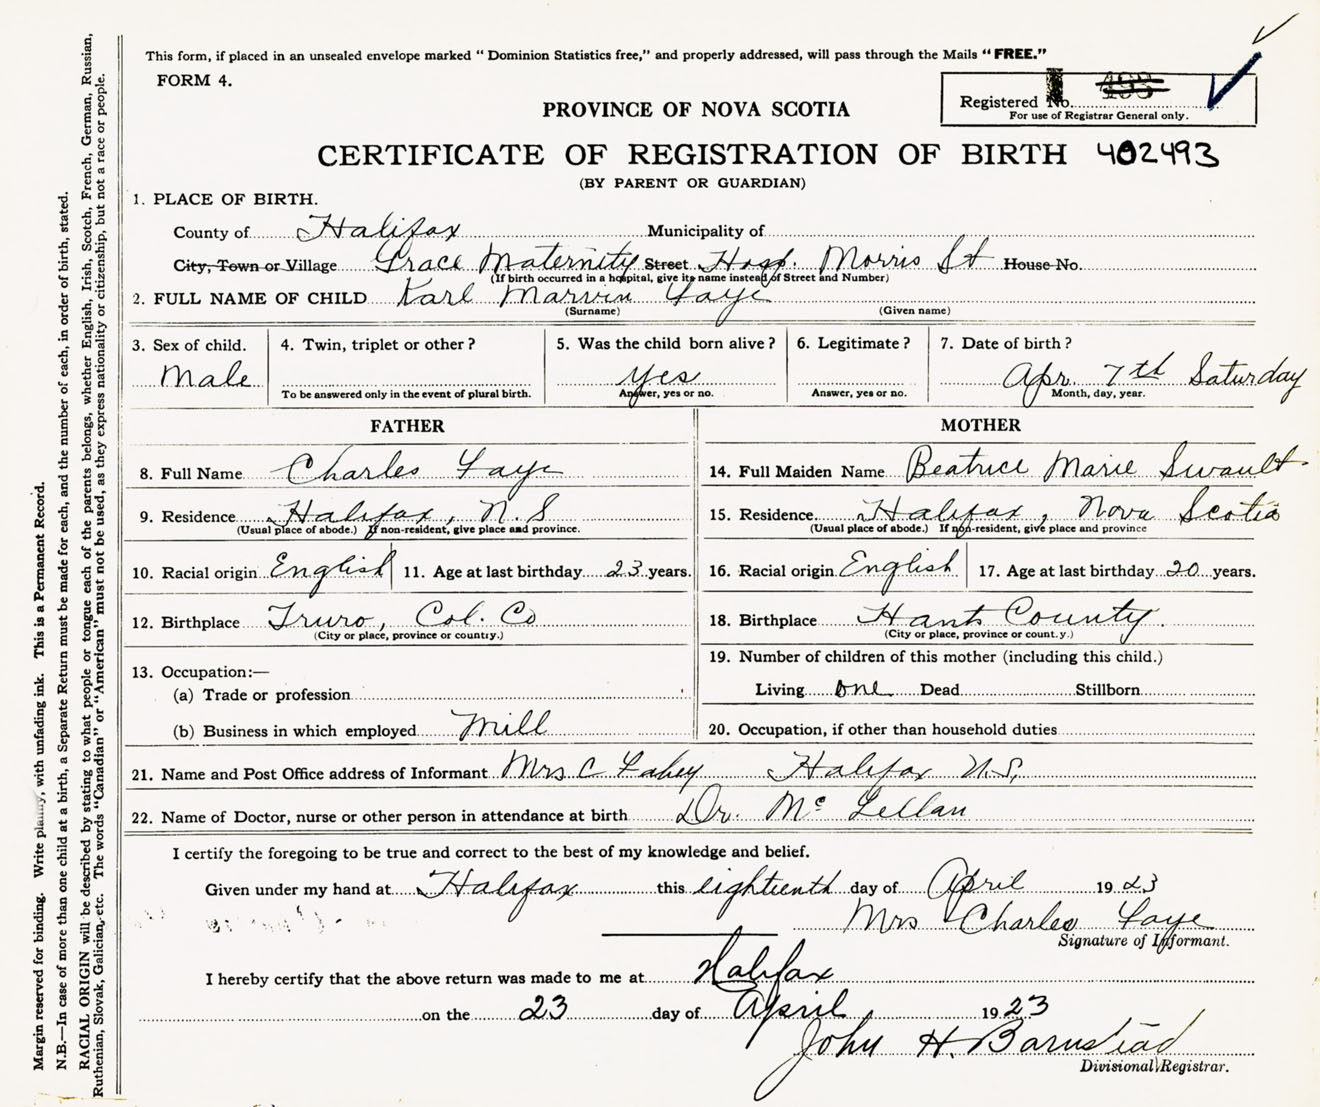 This form, if placed in an unsealed envelope marked “ Dominion Statistics free,” and properly addressed, will pass through the Mails “ FREE.”
FORM 4.
Registered No. 493
For use of Registrar General only.
PROVINCE OF NOVA SCOTIA
CERTIFICATE OF REGISTRATION OF BIRTH 402493
(BY PARENT OR GUARDIAN)
1. PLACE OF BIRTH.
County of Halifax Municipality of
City, Town or Village Grace Maternity Street Hosp. Morris St House No.
(If birth occurred in a hospital, give its name instead of Street and Number)
2. FULL NAME OF CHILD Karl Marvin Faye
(Surname) (Given name)
3. Sex of child. 4. Twin, triplet or other ? 5. Was the child born alive ? 6. Legitimate ? 7. Date of birth ?
Male yes Apr. 7th Saturday
To be answered only in the event of plural birth. Answer, yes or no. Answer, yes or no. Month, day, year.
FATHER MOTHER
8. Full Name Charles Faye 14. Full Maiden Name Beatrice Marie Swault
9. Residence Halifax, N.S 15. Residence Halifax, Nova Scotia
(Usual place of abode.) If non-resident, give place and province. (Usual place of abode.) If non-resident, give place and province
10. Racial origin English 11. Age at last birthday 23 years. 16. Racial origin English 17. Age at last birthday 20 years.
12. Birthplace Truro, Col. Co 18. Birthplace Hants County.
(City or place, province or county.) (City or place, province or county.)
13. Occupation:— 19. Number of children of this mother (including this child.)
(a) Trade or profession Living one Dead Stillborn
(b) Business in which employed Mill 20. Occupation, if other than household duties
21. Name and Post Office address of Informant Mrs C Fahey Halifax N.S,
22. Name of Doctor, nurse or other person in attendance at birth Dr. Mc Lellan
I certify the foregoing to be true and correct to the best of my knowledge and belief.
Given under my hand at Halifax this eighteenth day of April 1923
Mrs Charles Faye
Signature of Informant.
I hereby certify that the above return was made to me at Halifax
on the 23 day of April 1923
John H. Barnstead
Divisional Registrar.
Margin reserved for binding. Write plainly, with unfading ink. This is a Permanent Record.
N.B.—In case of more than one child at a birth, a Separate Return must be made for each, and the number of each, in order of birth, stated.
RACIAL ORIGIN will be described by stating to what people or tongue each of the parents belongs, whether English, Irish, Scotch, French, German, Russian,
Ruthenian, Slovak, Galician, etc. The words “Canadian” or “American” must not be used, as they express nationality or citizenship, but not a race or people.